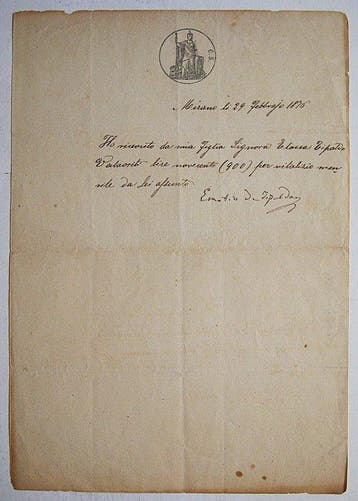 C. 5.
Mirano li 29 Febbrajo 1876
Ho ricevuto da mia figlia Signora Elowsa Tipaldo
lire novecento (900) per vitalizio men
sile da Lei assunto
Emilio De Tipaldo